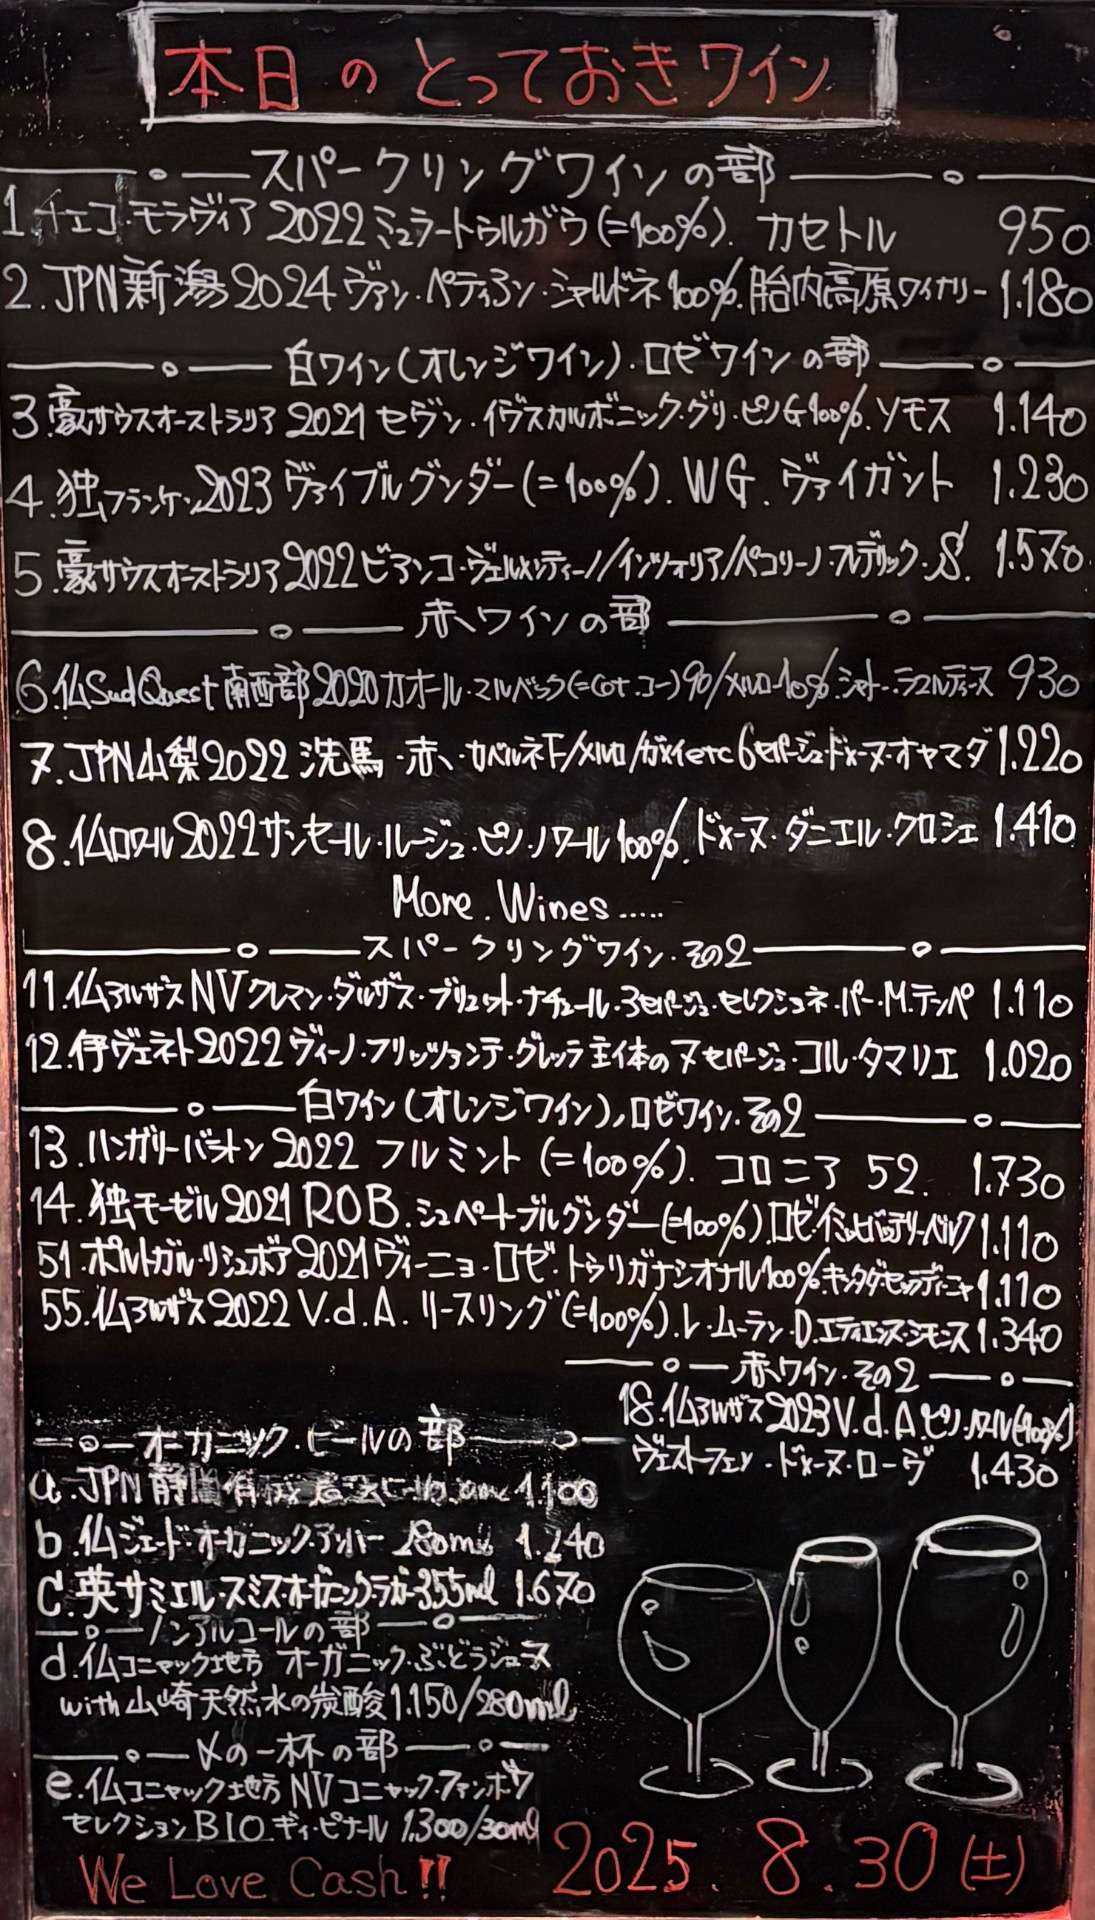 本日のとっておきワイン
スパークリングワインの部
1.チェコ・モラヴィア2022ミュラートゥルガウ(=100%).カセトル 950
2.JPN新潟2024ヴァン・ペティアン・シャルドネ100%.胎内高原ワイナリー 1.180
白ワイン(オレンジワイン).ロゼワインの部
3.豪サウスオーストラリア2021セヴン・イヴスカルボニック・グリ・ピノG100%.ソモス 1.140
4.独フランケン2023ヴァイブルグンダー(=100%).WG.ヴァイガント 1.230
5.豪サウスオーストラリア2022ビアンコ・ヴェルメンティーノ/インツォリア/ペコリーノ・フレデリック・S. 1.570
赤ワインの部
6.仏SudOuest南西部2020カオール・マルベック(=Cot.コー)90/メルロ-10%.シャトー・ラコルディース 930
7.JPN山梨2022洗馬・赤・カベルネF/メルロ/ガメイetc6セパージュドメーヌ・オヤマダ 1.220
8.仏ロワール2022サンセール・ルージュ・ピノ・ノワール100%.ドメーヌ・ダニエル・クロシェ 1.410
More.Wines.....
スパークリングワイン.その2
11.仏アルザスNVクレマン・ダルザス・ブリュット・ナチュール・3セパージュ・セレクショネ・パー・M.テンペ 1.110
12.伊ヴェネト2022ヴィーノ・フリッツァンテ・グレッラ主体の7セパージュ・コル・タマリエ 1.020
白ワイン(オレンジワイン),ロゼワイン.その2
13.ハンガリーバラトン2022 フルミント(=100%).コロニア52. 1.730
14.独モーゼル2021ROB.シュペートブルグンダー(=100%).ロゼ 1.110
51.ポルトガル・リシュボア2021ヴィーニョ・ロゼ・トゥリガナシオナル100%. 1.110
55.仏アルザス2022V.d.A.リースリング(=100%).レ・ムーラン・D.エティエンヌ・シモニス 1.340
赤ワイン.その2
18.仏アルザス2023V.d.A.ピノ・ノワール(=100%)
ヴェストフェン・ドメーヌ・ローヴ 1.430
オーガニック・ビールの部
a.JPN静岡 1.100
b.仏ジェード・オーガニック・アンバー 280ml 1.240
C.英サミエル・スミスオーガニックラガー355ml 1.670
ノンアルコールの部
d.仏コニャック地方 オーガニック・ぶどうジュース
with山崎天然水の炭酸1.150/280ml
〆の一杯の部
e.仏コニャック地方NVコニャック・ファンボワ
セレクションBIOギィ・ピナール 1.300/30ml
We Love Cash!! 2025.8.30(土)